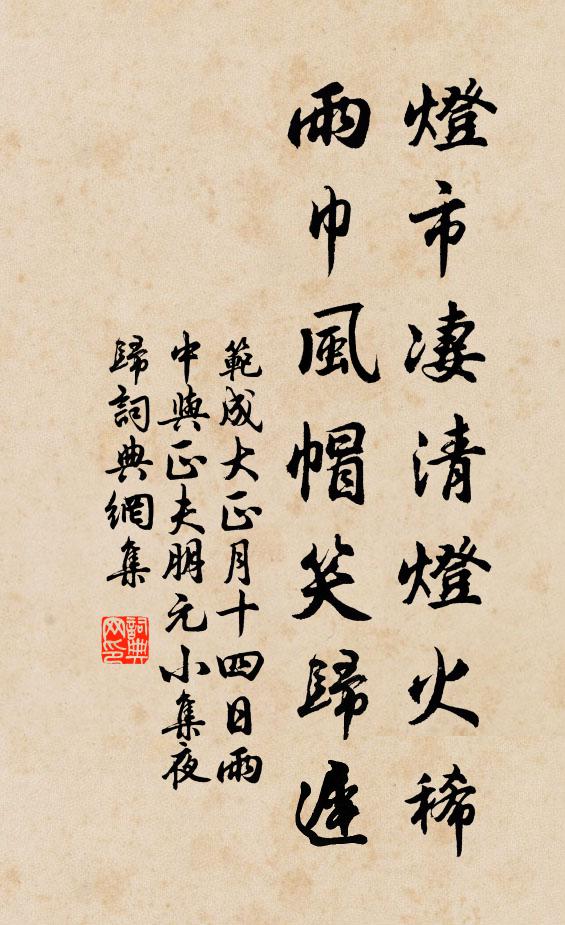 燈市凄清燈火稀
雨巾風帽笑歸遲
範成大正月十四日雨
中與正夫朋元小集夜
歸詞典網集
詞典
网印